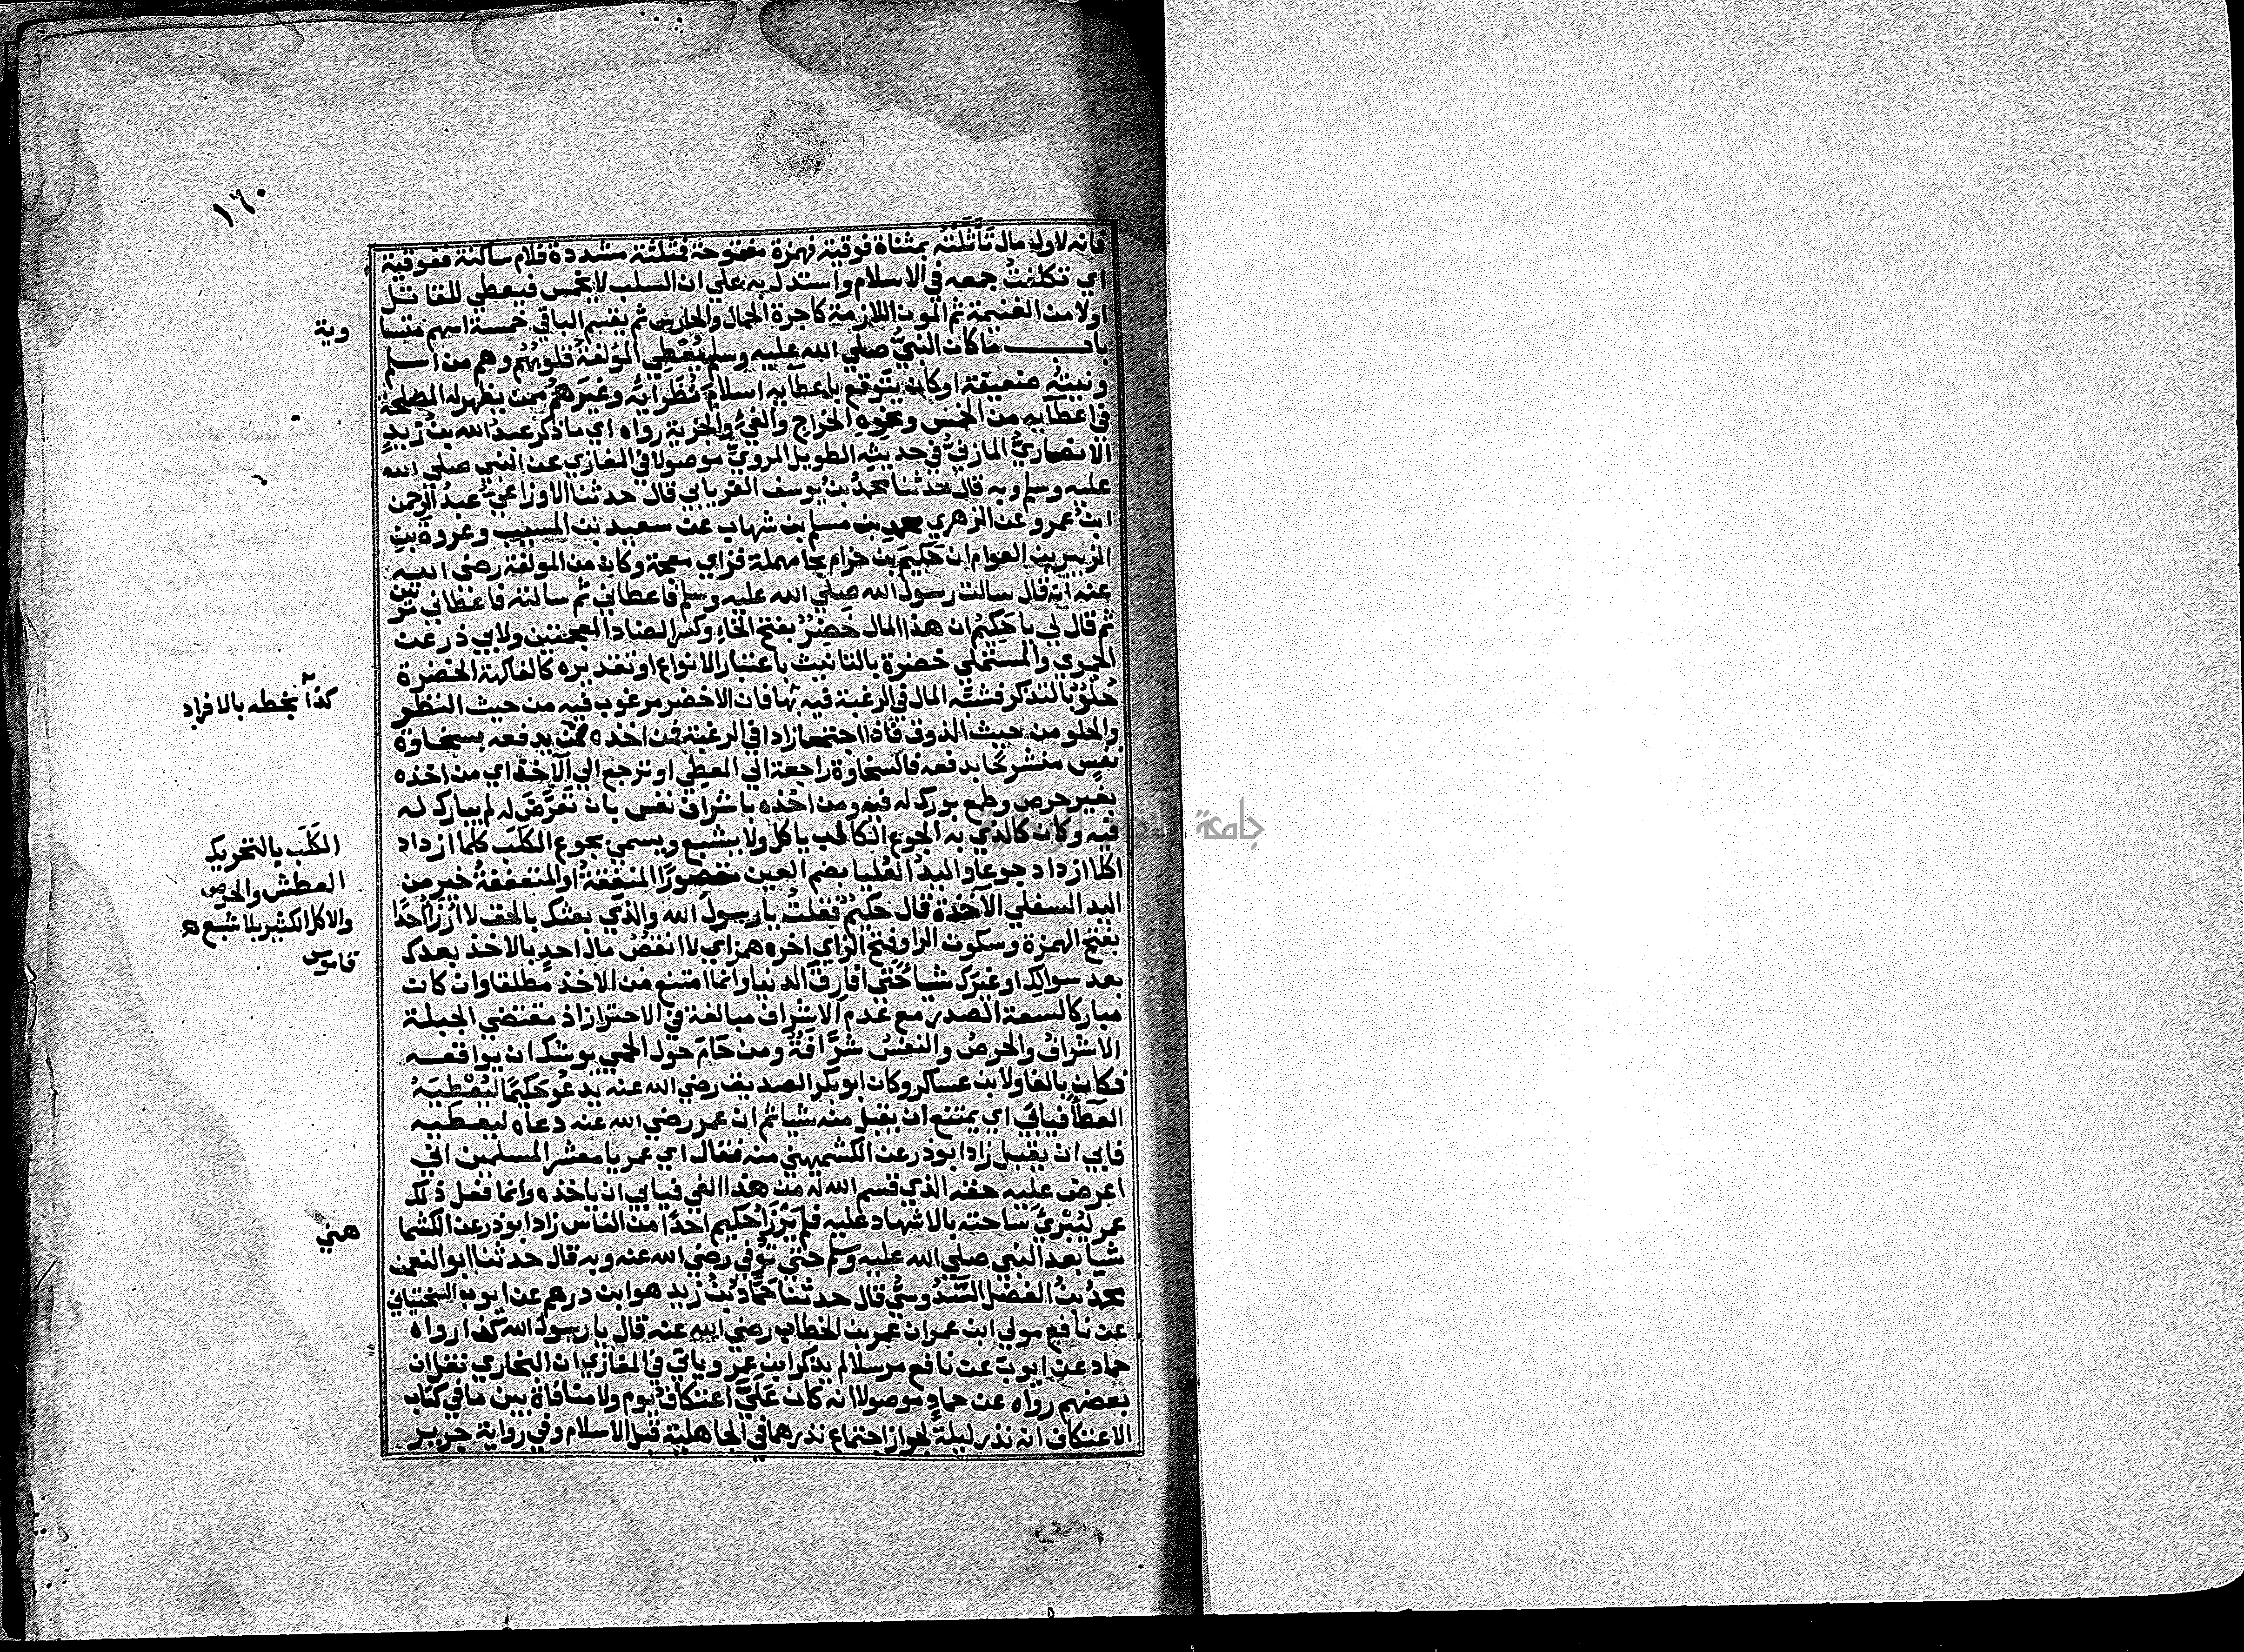 ١٦٠
فانه لاول مال تَأَثَّلْتُه بمثناة فوقية فهمزة مفتوحة فمثلثة مشددة فلام ساكنة ففوقية
اي تكلفت جمعه في الاسلام واستدل به علي ان السلب لا يخمس فيعطي للقاتل
اولا من الغنيمة ثم المون اللازمة كاجرة الحمال والحارس ثم يقسم الباقي خمسة اسهم متسا
وية
باب ما كان النبيُّ صلي الله عليه وسلم يُعْطِي المُولفةَ قلوبُهُم وهم من اسلم
ونيتُه ضعيفة او كان يتوقع باعطايه اسلامَ نُظَرَايه وغيرَهم ممن يظهر له المصلحة
في اعطآيه من الخمس ونحوِهِ الخراج والفيُ والجزية رواه اي ما ذكر عبدُ الله بن زيدٍ
الانصاريُّ المازنيُّ في حديثه الطويل المرويِّ موصولا في المغازي عن النبي صلي الله
عليه وسلم وبه قال حدثنا محمدُ بنُ يوسف الفريابي قال حدثنا الاوزاعيُّ عبدُ الرحمن
ابنُ عمرو عن الزهري محمدِ بن مسلم بن شهاب عن سعيد بن المسيب وعروةَ بنِ
الزبير بن العوام ان حَكيمَ بن حزام بحا مهملة فزاي معجمة وكان من المولفة رضي الله
عنه انه قال سالت رسولَ الله صلي الله عليه وسلم فاعطاني ثم سالته فاعطاني مرتين
ثم قال لي يا حَكِيمُ ان هذا المال خَضِرٌ بفتح الخاءِ وكسر الضاد المعجمتين ولابي ذر عن
الحموي والمستملي خضرة بالتانيث باعتبار الانواع او تقديره كالفاكهة الخضرة
حُلْوٌ بالتذكر فشبَّه المال في الرغبة فيه بها فان الاخضر مرغوب فيه من حيث النظر
كذا بخطه بالافراد
والحلو من حيث الذوق فاذا اجتمعا زادا في الرغبة فمن اخذه ممن يدفعه بسخاوة
نفسٍ منشرحًا بدفعه فالسخاوة راجعة الي المعطي او ترجع الي الآخذ اي من اخذه
بغير حرص وطمع بورك له فيه ومن اخذه باشراف نفس بان تَعَرَّضَ له لم يبارك له
فيه وكان كالذي به الجوع الكالب ياكل ولا يشبع ويسمي بجوع الكَلَب كلما ازداد
الكَلَب بالتحريك
العطش والحرص
والاكل الكثير بلا شبع ه
قاموس
اكلا ازداد جوعا واليد العُليا بضم العين مقصورًا المنفقةُ او المتعففةُ خير من
اليد السفلي الآخذة قال حكيمٌ فقلت يا رسولَ الله والذي بعثك بالحق لا ارْزَأُ احدًا
بفتح الهمزة وسكون الرا وفتح الزاي اخره همز اي لا انقصُ مال احدٍ بالاخذ بعدك
بعد سوالِك او غيرَك شيا حتي افارقَ الدنيا وانما امتنع من الاخذ مطلقا وان كان
مباركا لسعة الصدر مع عدم الاشراف مبالغة في الاحتراز اذ مقتضي الجبلة
الاشرافُ والحرصُ والنفسُ شَرَّافَةٌ ومن حَامَ حول الحمي يوشك ان يواقعه
فكان بالفا ولابن عساكر وكان ابو بكر الصديق رضي الله عنه يدعُو حَكيمًا ليُعْطِيَهُ
العَطآ فيابي اي يمتنع ان يقبل منه شيا ثم ان عمر رضي الله عنه دعاه ليعطيه
فابي ان يقبل زاد ابو ذر عن الكشميهني منه فقال اي عمر يا معشر المسلمين اني
اعرض عليه حقه الذي قسم الله له من هذا الفي فيابي ان ياخذه وانما فعل ذلك
عمر ليُبْرِيَ ساحته بالاشهاد عليه فلم يَرْزَأْ حكيم احدًا من الناس زاد ابو ذر عن الكشما
هني
شيا بعد النبي صلي الله عليه وسلم حتي توفي رضي الله عنه وبه قال حدثنا ابو النعمن
محمدُ بنُ الفضل السَّدُوسيُّ قال حدثنا حَمَّادُ بنُ زيد هو ابن درهم عن ايوب السختياني
عن نافع مولي ابن عمر ان عمر بن الخطاب رضي الله عنه قال يا رسولَ الله كذا رواه
حماد عن ايوبَ عن نافع مرسلا لم يذكر ابن عمر وياتي في المغازي ان البخاري نقل ان
بعضهم رواه عن حمادٍ موصولا انه كان عَلَيَّ اعتكافُ يوم ولا منافاة بين ما في كتاب
الاعتكاف انه نذر ليلةً لجواز اجتماع نذرهما في الجاهلية قبل الاسلام وفي رواية جرير